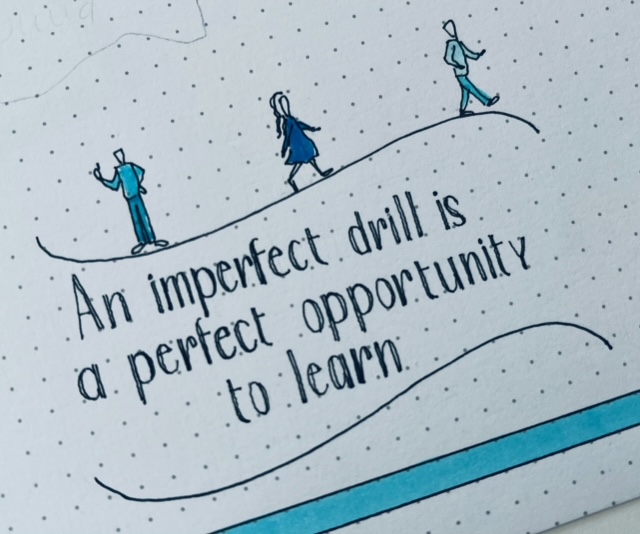 An imperfect drill is
a perfect opportunity
to learn